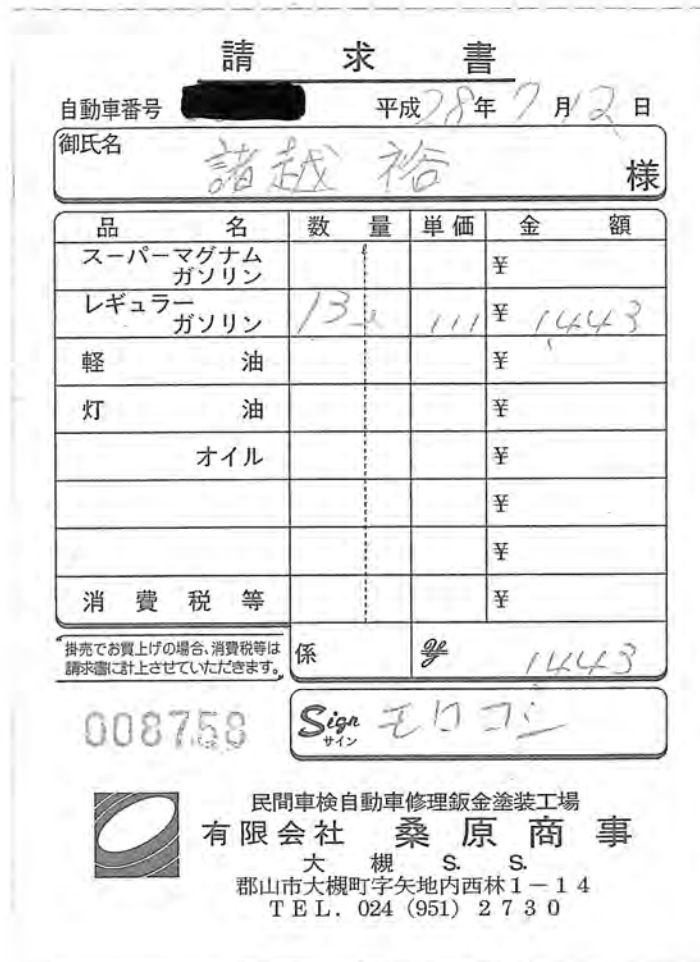 請求書
自動車番号 平成28年7月12日
御氏名
諸越 裕 様
品名 数量 単価 金額
スーパーマグナム
ガソリン ¥
レギュラー
ガソリン 13 111 ¥ 1443
軽油 ¥
灯油 ¥
オイル ¥
¥
¥
消費税等 ¥
掛売でお買上げの場合、消費税等は
請求書に計上させていただきます。
係 ¥ 1443
008758
Sign モロコシ
サイン
民間車検自動車修理鈑金塗装工場
有限会社 桑原商事
大槻 S. S.
郡山市大槻町字矢地内西林1-14
TEL. 024 (951) 2730